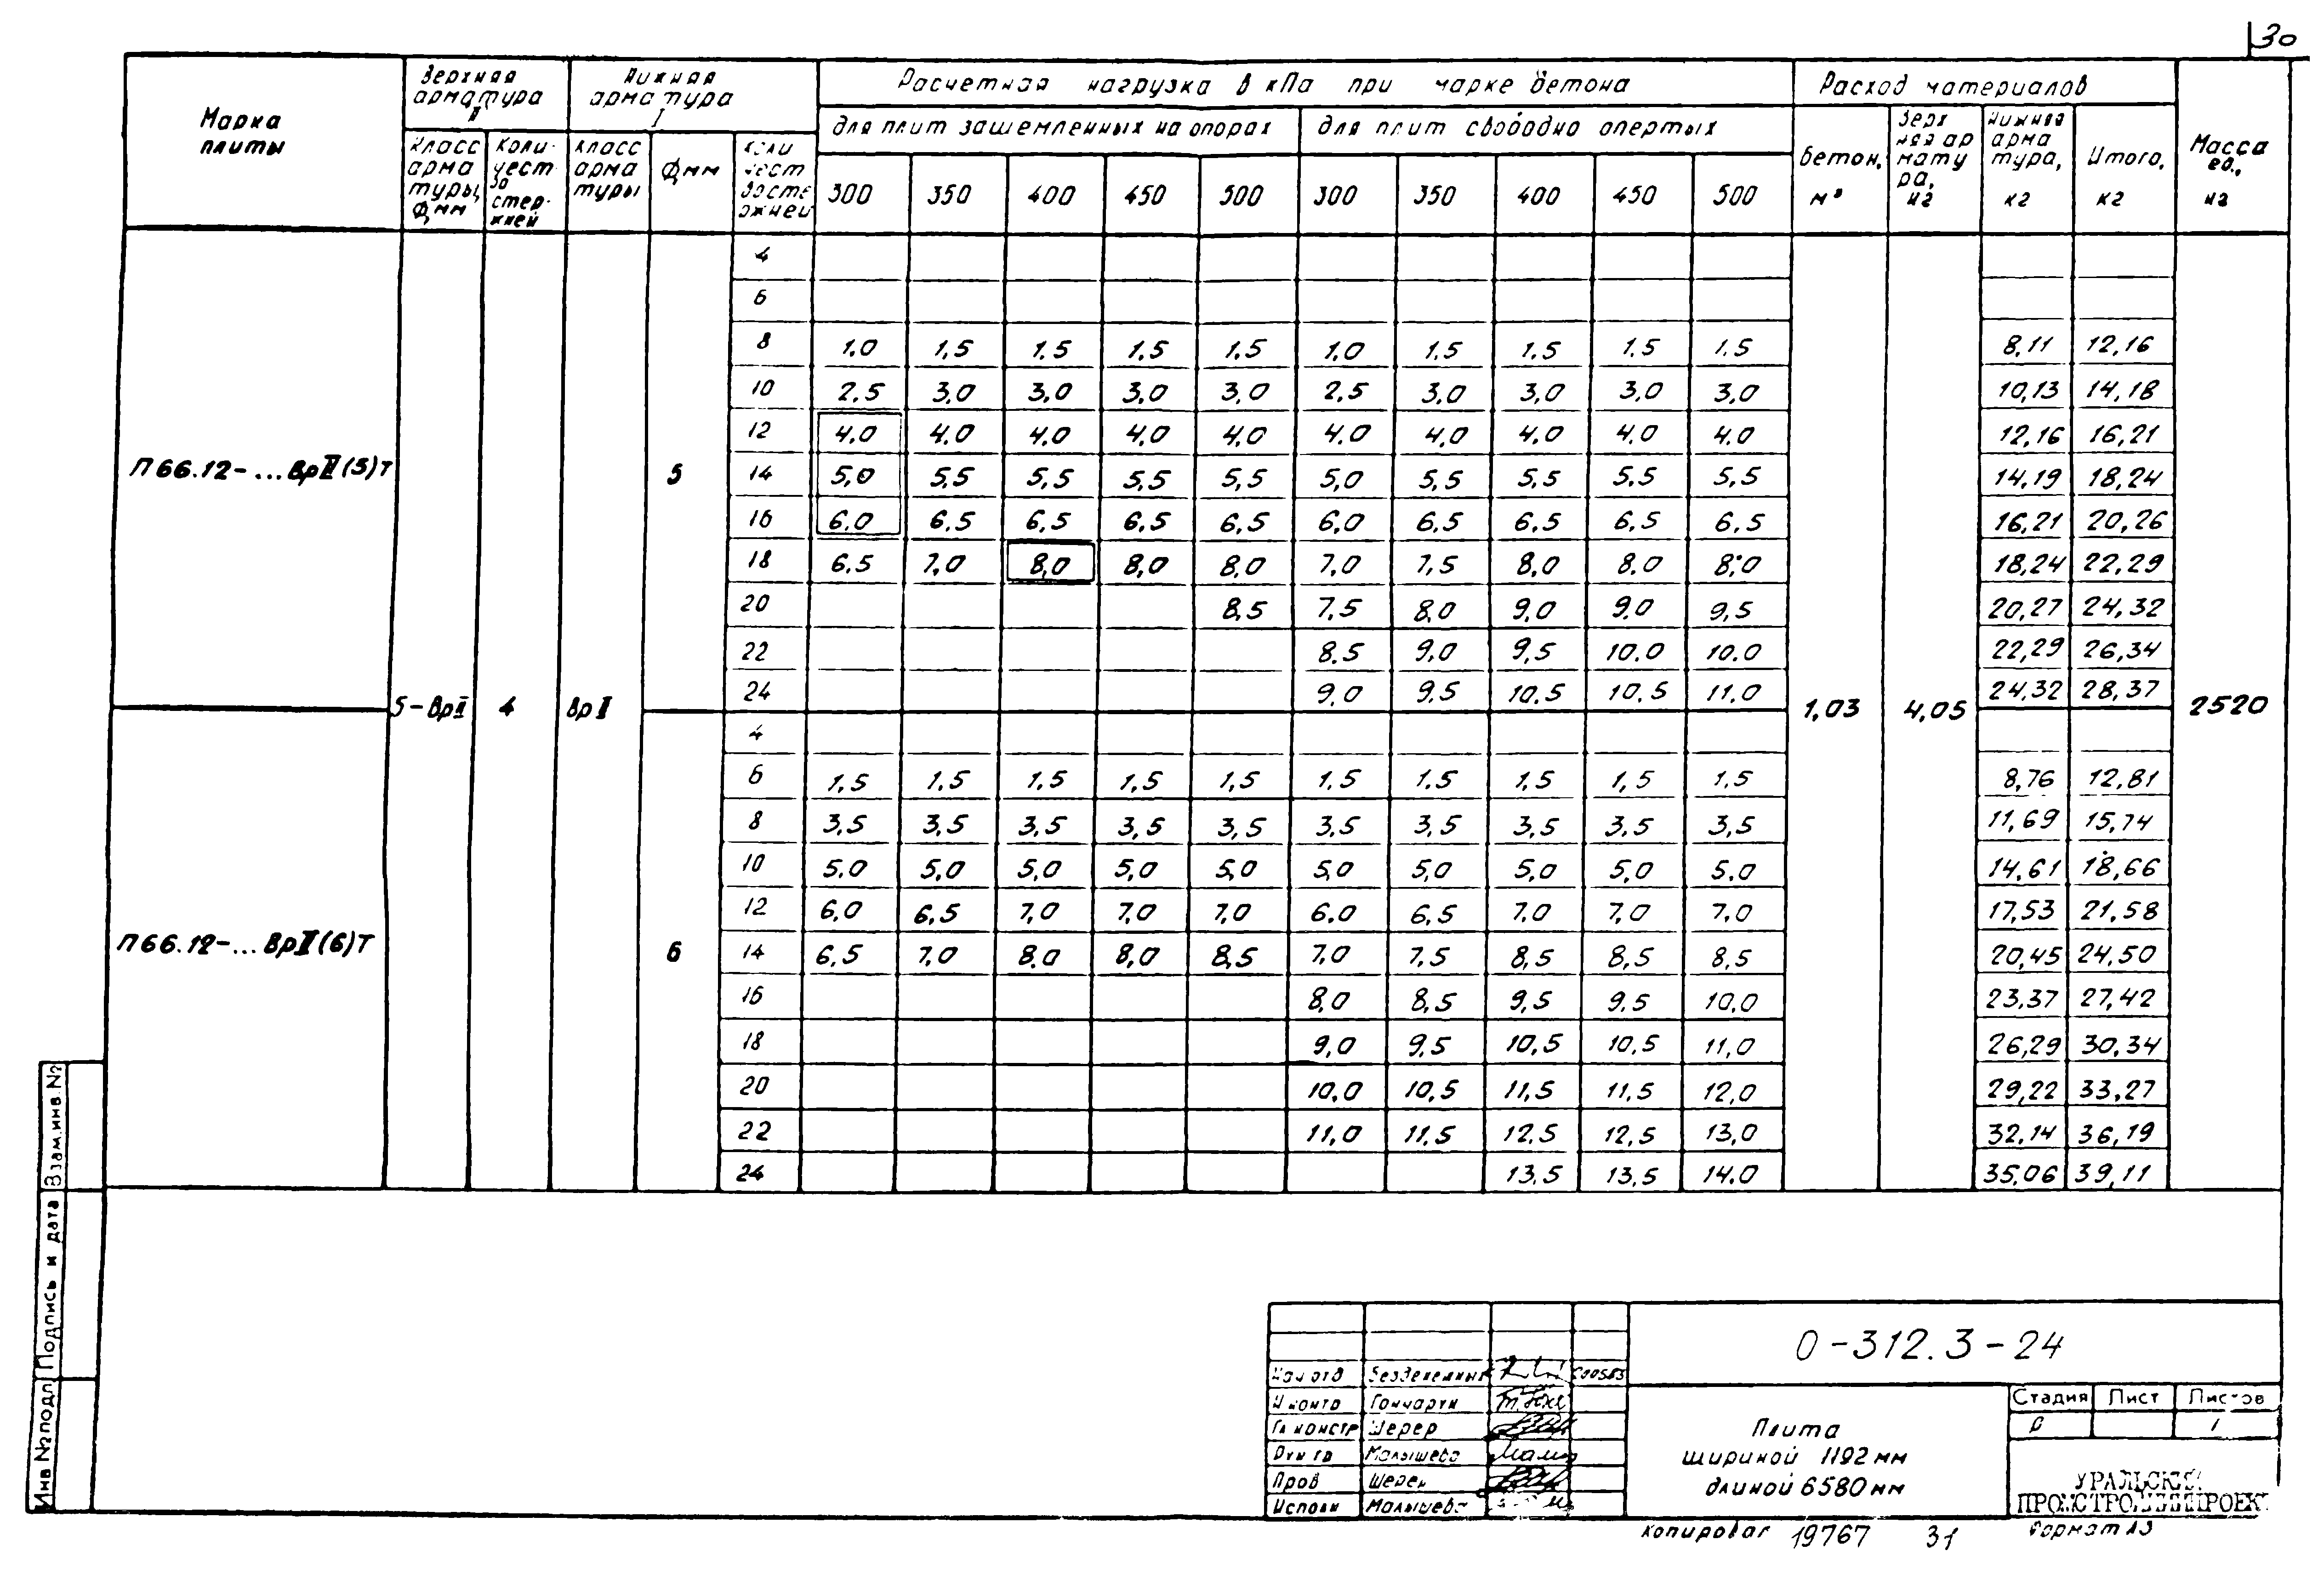 30
Марка плиты
Верхняя арматура II
Нижняя арматура I
Расчетная нагрузка в кПа при марке бетона
Расход материалов
Масса ед., кг
для плит защемленных на опорах
для плит свободно опертых
Класс арматуры, Ф, мм
Количество стержней
Класс арматуры
Ф, мм
Количество стержней
300 350 400 450 500 300 350 400 450 500
Бетон, м³
Верхняя арматура, кг
Нижняя арматура, кг
Итого, кг
4
6
8 1,0 1,5 1,5 1,5 1,5 1,0 1,5 1,5 1,5 1,5 8,11 12,16
10 2,5 3,0 3,0 3,0 3,0 2,5 3,0 3,0 3,0 3,0 10,13 14,18
12 4,0 4,0 4,0 4,0 4,0 4,0 4,0 4,0 4,0 4,0 12,16 16,21
П66.12-...ВрII(5)т 5 14 5,0 5,5 5,5 5,5 5,5 5,0 5,5 5,5 5,5 5,5 14,19 18,24
16 6,0 6,5 6,5 6,5 6,5 6,0 6,5 6,5 6,5 6,5 16,21 20,26
18 6,5 7,0 8,0 8,0 8,0 7,0 7,5 8,0 8,0 8,0 18,24 22,29
20 8,5 7,5 8,0 9,0 9,0 9,5 20,27 24,32
22 8,5 9,0 9,5 10,0 10,0 22,29 26,34
24 9,0 9,5 10,5 10,5 11,0 24,32 28,37
5-ВрII 4 ВрII 1,03 4,05 2520
4
6 1,5 1,5 1,5 1,5 1,5 1,5 1,5 1,5 1,5 1,5 8,76 12,81
8 3,5 3,5 3,5 3,5 3,5 3,5 3,5 3,5 3,5 3,5 11,69 15,74
10 5,0 5,0 5,0 5,0 5,0 5,0 5,0 5,0 5,0 5,0 14,61 18,66
12 6,0 6,5 7,0 7,0 7,0 6,0 6,5 7,0 7,0 7,0 17,53 21,58
П66.12-...ВрII(6)т 6 14 6,5 7,0 8,0 8,0 8,5 7,0 7,5 8,5 8,5 8,5 20,45 24,50
16 8,0 8,5 9,5 9,5 10,0 23,37 27,42
18 9,0 9,5 10,5 10,5 11,0 26,29 30,34
20 10,0 10,5 11,5 11,5 12,0 29,22 33,27
22 11,0 11,5 12,5 12,5 13,0 32,14 36,19
24 13,5 13,5 14,0 35,06 39,11
Взам.инв.№
Подпись и дата
Инв.№подл
0-312.3-24
Нач отд
Н контр Гончарук
Гл констр Шерер
Рук гр Малышева
Пров Шерер
Исполн Малышева
Плита
шириной 1192 мм
длиной 6580 мм
Стадия Лист Листов
Р 1
УРАЛЬСКИЙ
ПРОМСТРОЙНИИПРОЕКТ
Копировал 19767 31 Формат А3